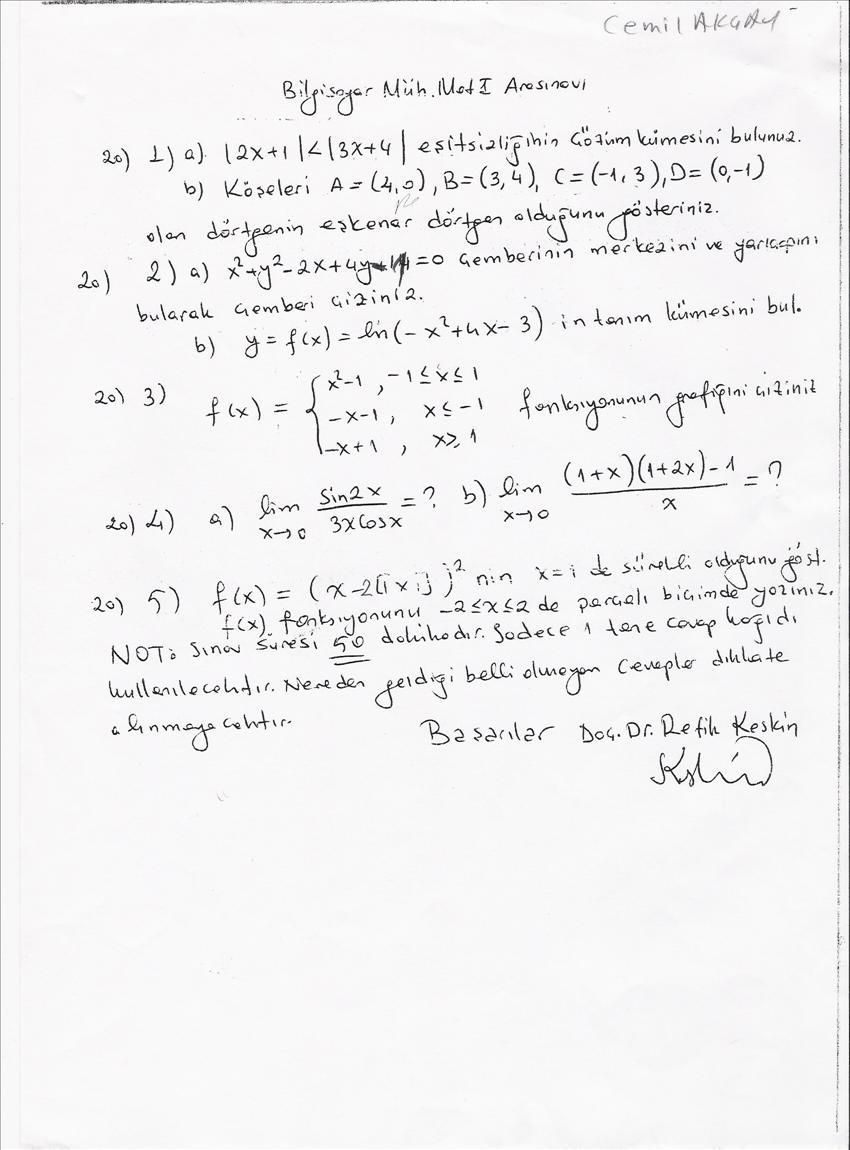 Cemil AKGAY
Bilgisayar Müh. Mat I Arasınavı
20) 1) a) |2x+1|<|3x+4| eşitsizliğinin çözüm kümesini bulunuz.
b) Köşeleri A=(4,0), B=(3,4), C=(-1,3), D=(0,-1)
olan dörtgenin eşkenar dörtgen olduğunu gösteriniz.
20) 2) a) x²+y²-2x+4y =0 çemberinin merkezini ve yarıçapını
bularak çemberi çiziniz.
b) y=f(x)=ln(-x²+4x-3) in tanım kümesini bul.
20) 3) f(x) = { x²-1 , -1≤x≤1
-x-1 , x≤-1 fonksiyonunun grafiğini çiziniz
-x+1 , x≥1
20) 4) a) lim x→0 sin2x / 3xcosx = ? b) lim x→0 (1+x)(1+2x)-1 / x = ?
20) 5) f(x) = (x-2[|x|])² nin x=1 de sürekli olduğunu göst.
f(x) fonksiyonunu -2≤x≤2 de parçalı biçimde yazınız.
NOT: Sınav süresi 50 dakikadır. Sadece 1 tane cevap kağıdı
kullanılacaktır. Nereden geldiği belli olmayan cevaplar dikkate
alınmayacaktır.
Başarılar Doç. Dr. Refik Keskin